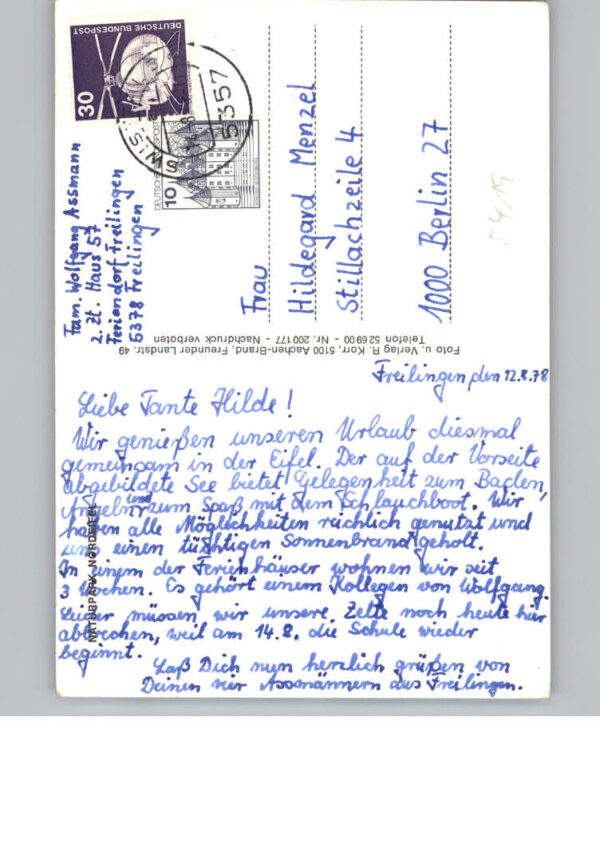 DEUTSCHE BUNDESPOST
30
5357
SWIS
10
Fam. Wolfgang Assmann
z. Zt. Haus 57
Feriendorf Freilingen
5378 Freilingen
Frau
Hildegard Menzel
Stillachzeile 4
1000 Berlin 27
54/19
Foto u. Verlag R. Korr, 5100 Aachen-Brand, Freunder Landstr. 49
Telefon 526900 - Nr. 200177 - Nachdruck verboten
NATURPARK NORDEIFEL
Freilingen den 12.8.78
Liebe Tante Hilde!
Wir genießen unseren Urlaub diesmal
gemeinsam in der Eifel. Der auf der Vorseite
abgebildete See bietet Gelegenheit zum Baden,
Angeln und zum Spaß mit dem Schlauchboot. Wir
haben alle Möglichkeiten reichlich genutzt und
uns einen tüchtigen Sonnenbrand geholt.
In einem der Ferienhäuser wohnen wir seit
3 Wochen. Es gehört einem Kollegen von Wolfgang.
Leider müssen wir unsere Zelte noch heute hier
abbrechen, weil am 14.8. die Schule wieder
beginnt.
Laß Dich nun herzlich grüßen von
Deinen vier Assmännern aus Freilingen.